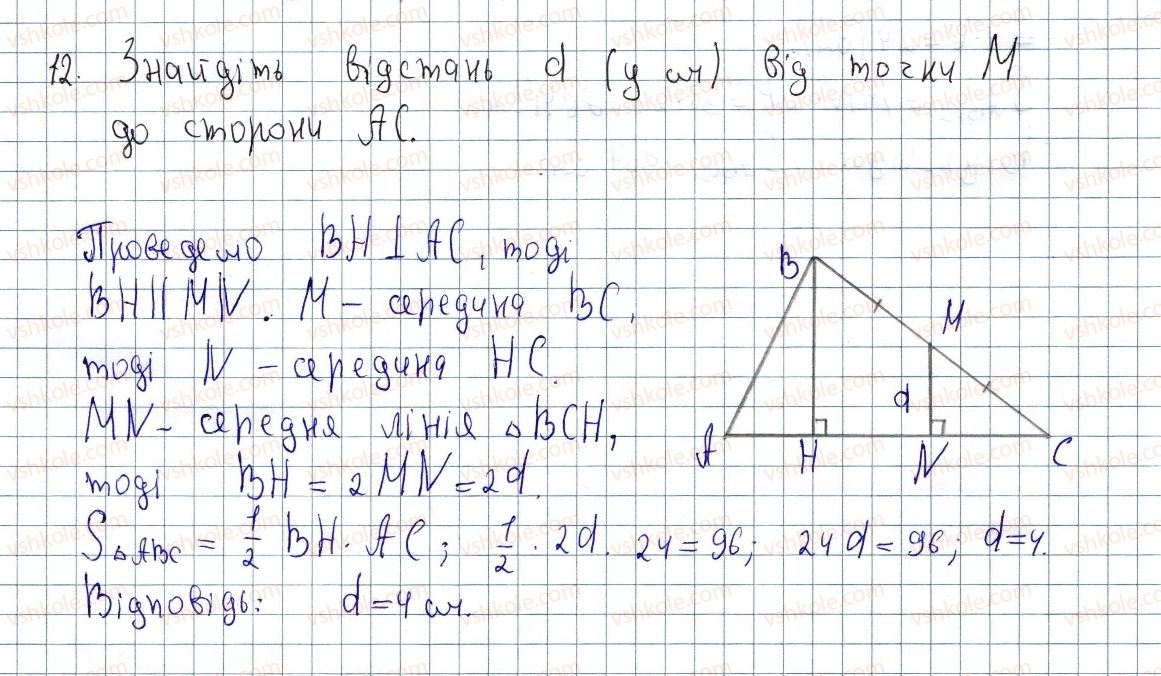 12. Знайдіть відстань d (у см) від точки M
до сторони AC.
Проведемо BH⊥AC, тоді
BH||MN. M – середина BC,
тоді N – середина HC.
MN – середня лінія △BCH,
тоді BH = 2MN = 2d.
S△ABC = 1/2 BH · AC; 1/2 · 2d · 24 = 96; 24d = 96; d = 4.
Відповідь: d = 4 см.
B
M
d
A
H
N
C